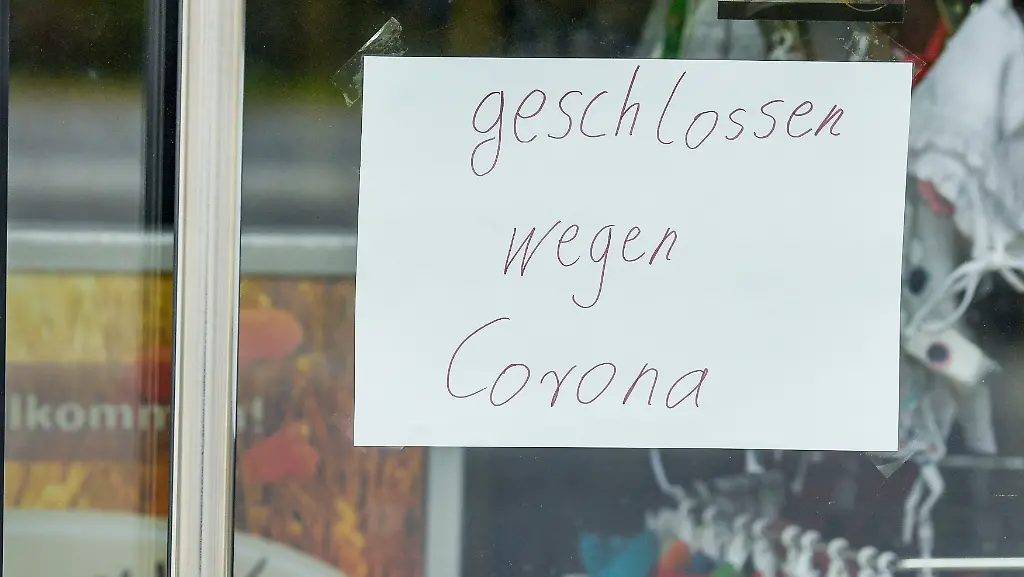 geschlossen
wegen
Corona
lkommen!